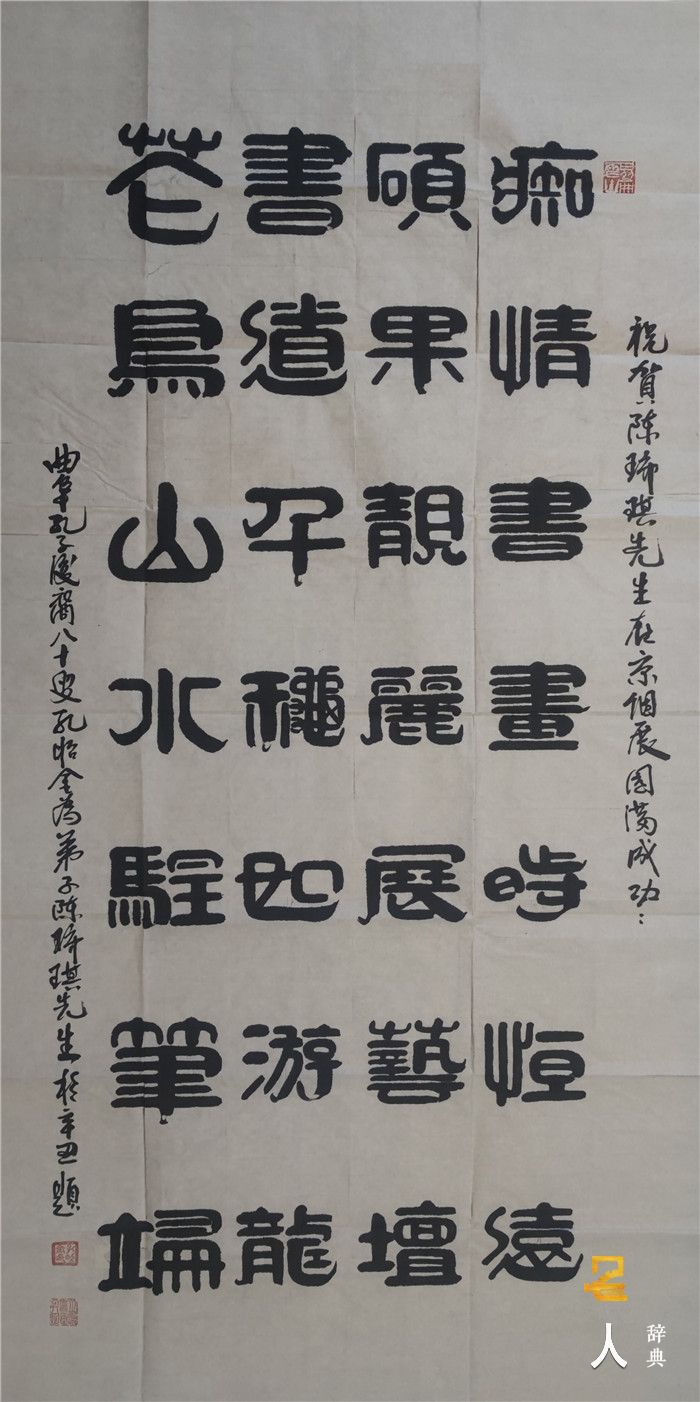 祝賀陈琦琪先生在京個展圆满成功：
痴情書畫時恒遠
碩果靚麗展藝壇
書道平穩如游龍
花鳥山水駐筆端
曲阜孔子後裔八十叟孔怡金為弟子陈琦琪先生於辛丑題
名人辞典